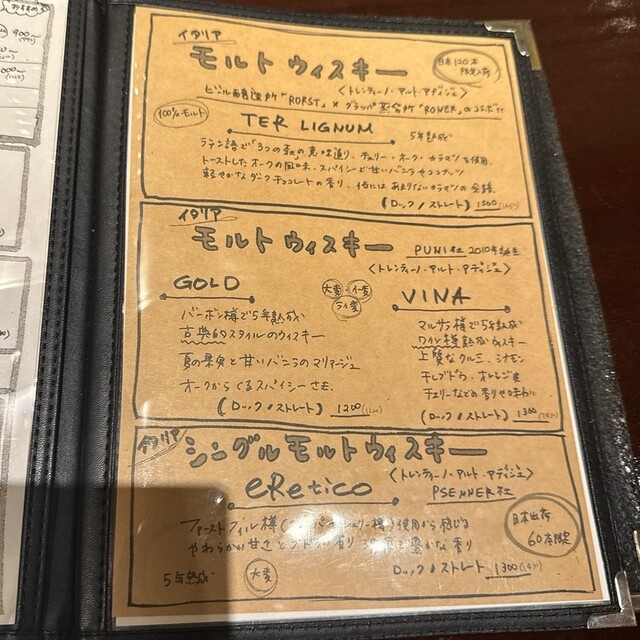 イタリア
モルトウィスキー
日本120本
限定入荷
〈トレンティーノ・アルト・アディジェ〉
ビール醸造所"FORST" × グラッパ蒸留所"RONER"のコラボ!!
100%モルト
TER LIGNUM
5年熟成
ラテン語で「3つの木」の意味通り、チェリー・オーク・カラマツを使用。
トーストしたオークの風味、スパイシーで甘いバニラやココナッツ
軽やかなダークチョコレートの香り、他にはあまりないカラマツの余韻
(ロック/ストレート) 1300
イタリア
モルトウィスキー
PUNI社 2010年誕生
〈トレンティーノ・アルト・アディジェ〉
GOLD
大麦・小麦
ライ麦
バーボン樽で5年熟成
古典的スタイルのウィスキー
夏の果実と甘いバニラのマリアージュ
オークからくるスパイシーさも。
(ロック/ストレート) 1200
VINA
マルサラ樽で5年熟成
ワイン樽熟成ウィスキー
上質なクルミ、シナモン
干しブドウ、オレンジ皮
チェリーなどの香りや味わい
(ロック/ストレート) 1300
イタリア
シングルモルトウィスキー
〈トレンティーノ・アルト・アディジェ〉
eRetico
PSENNER社
ファーストフィル樽 シェリー樽)使用から感じる
やわらかい甘さと 香り 豊かな香り
日本出荷
60本限定
5年熟成
大麦
ロック/ストレート 1300